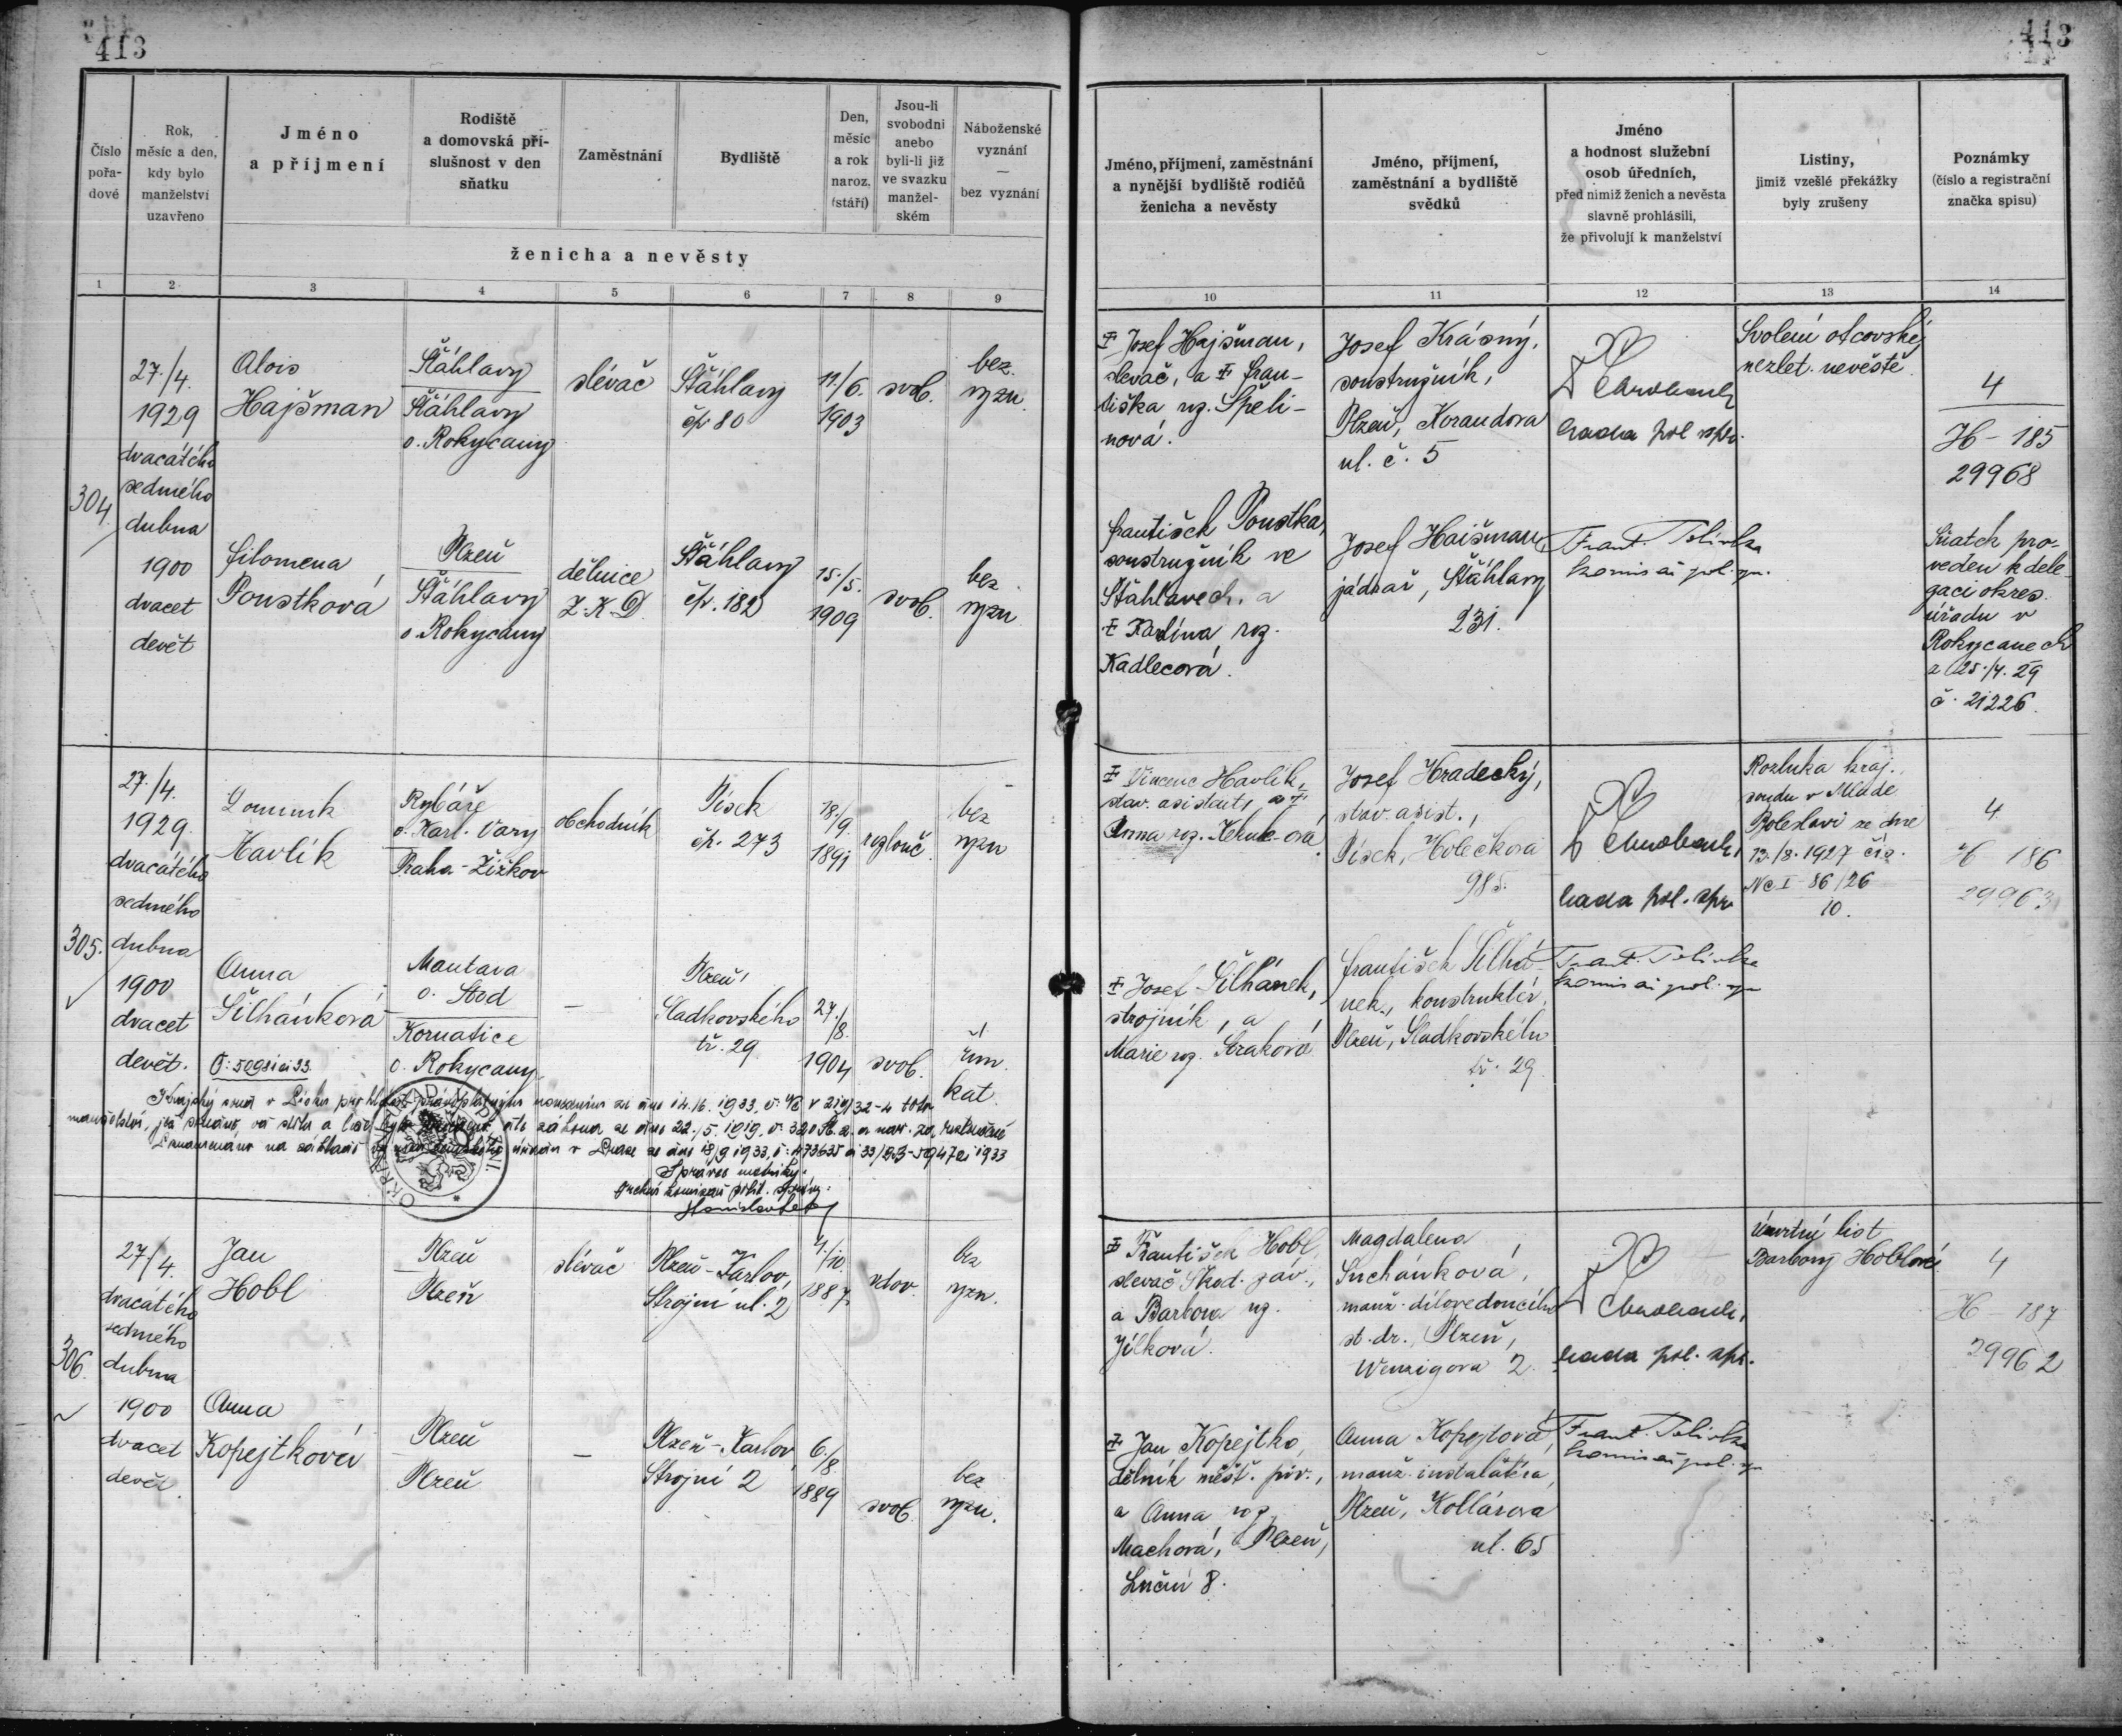 413
413
Číslo pořa- dové
Rok, měsíc a den, kdy bylo manželství uzavřeno
Jméno a příjmení
Rodiště a domovská pří- slušnost v den sňatku
Zaměstnání
Bydliště
Den, měsíc a rok naroz. (stáří)
Jsou-li svobodni anebo byli-li již ve svazku manžel- ském
Náboženské vyznání — bez vyznání
ženicha a nevěsty
Jméno, příjmení, zaměstnání a nynější bydliště rodičů ženicha a nevěsty
Jméno, příjmení, zaměstnání a bydliště svědků
Jméno a hodnost služební osob úředních, před nimiž ženich a nevěsta slavně prohlásili, že přivolují k manželství
Listiny, jimiž vzešlé překážky byly zrušeny
Poznámky (číslo a registrační značka spisu)
1 2 3 4 5 6 7 8 9 10 11 12 13 14
304
27./4.
1929
dvacátého
sedmého
dubna
1900
dvacet
devět
Alois
Hajšman
Šťáhlavy
Šťáhlavy
o. Rokycany
slévač
Šťáhlavy
čp 80
11./6.
1903
svob.
bez
vyzn.
Josef Hajšman,
slevač, a Fran-
tiška roz. Špeli-
nová.
Josef Krásný,
soustružník,
Plzeň, Korandova
ul. č. 5
rada pol. spr.
Svolení otcovské
nezlet. nevěstě
4
H - 185
29968
Filomena
Poustková
Plzeň
Šťáhlavy
o. Rokycany
dělnice
Z. K. D.
Šťáhlavy
čp. 182
15./5.
1909
svob.
bez
vyzn
František Poustka,
soustružník ve
Šťáhlavech, a
Karlína roz.
Kadlecová.
Josef Haišman,
jádrař, Šťáhlavy
231.
Frant.
komisař pol. spr.
Sňatek pro-
veden k dele-
gaci okres.
úřadu v
Rokycanech
z 25./4. 29
č. 21226.
305.
27./4.
1929
dvacátého
sedmého
dubna
1900
dvacet
devět.
Dominik
Havlík
Rybáře
o. Karl. Vary
Praha-Žižkov
obchodník
Písek
čp. 273
18./9.
1891
rozlouč.
bez
vyzn
Vincenc Havlík,
stav. asistent, a
Anna roz.
Josef Hradecký,
stav. asist.,
Písek, Holečkova
985.
rada pol. spr.
Rozluka kraj.
soudu v Mladé
Boleslavi ze dne
13./8. 1927 čís.
Nc I - 86/26
10.
4
H 186
29963
Anna
Šilhánková
Mantava
o. Stod
Kornatice
o. Rokycany
—
Plzeň
Sladkovského
tř. 29
27./8.
1904
svob.
řím.
kat.
Josef Šilhánek,
strojník, a
Marie roz. Straková
František Šilhá-
nek, konstruktér,
Plzeň, Sladkovského
tř. 29
Frant.
komisař pol. spr.
306.
27./4.
dvacátého
sedmého
dubna
1900
dvacet
devět.
Jan
Hobl
Plzeň
Plzeň
slévač
Plzeň-Karlov,
Strojní ul. 2
4./10.
1887
vdov.
bez
vyzn.
František Hobl,
slevač Škod. záv.,
a Barbora roz.
Jílková.
Magdalena
Suchánková,
manž. dílovedoucího
st. dr., Plzeň,
Wenzigova 2.
rada pol. spr.
Úmrtný list
Barbory Hoblové.
4
H 187
29962
Anna
Kopejtková
Plzeň
Plzeň
—
Plzeň-Karlov,
Strojní 2
6./8.
1889
svob.
bez
vyzn.
Jan Kopejtko,
dělník měšť. piv.,
a Anna roz.
Machová, Plzeň,
Luční 8.
Anna Kopejtová,
manž. instalatéra,
Plzeň, Kollárova
ul. 65
Frant.
komisař pol. spr.